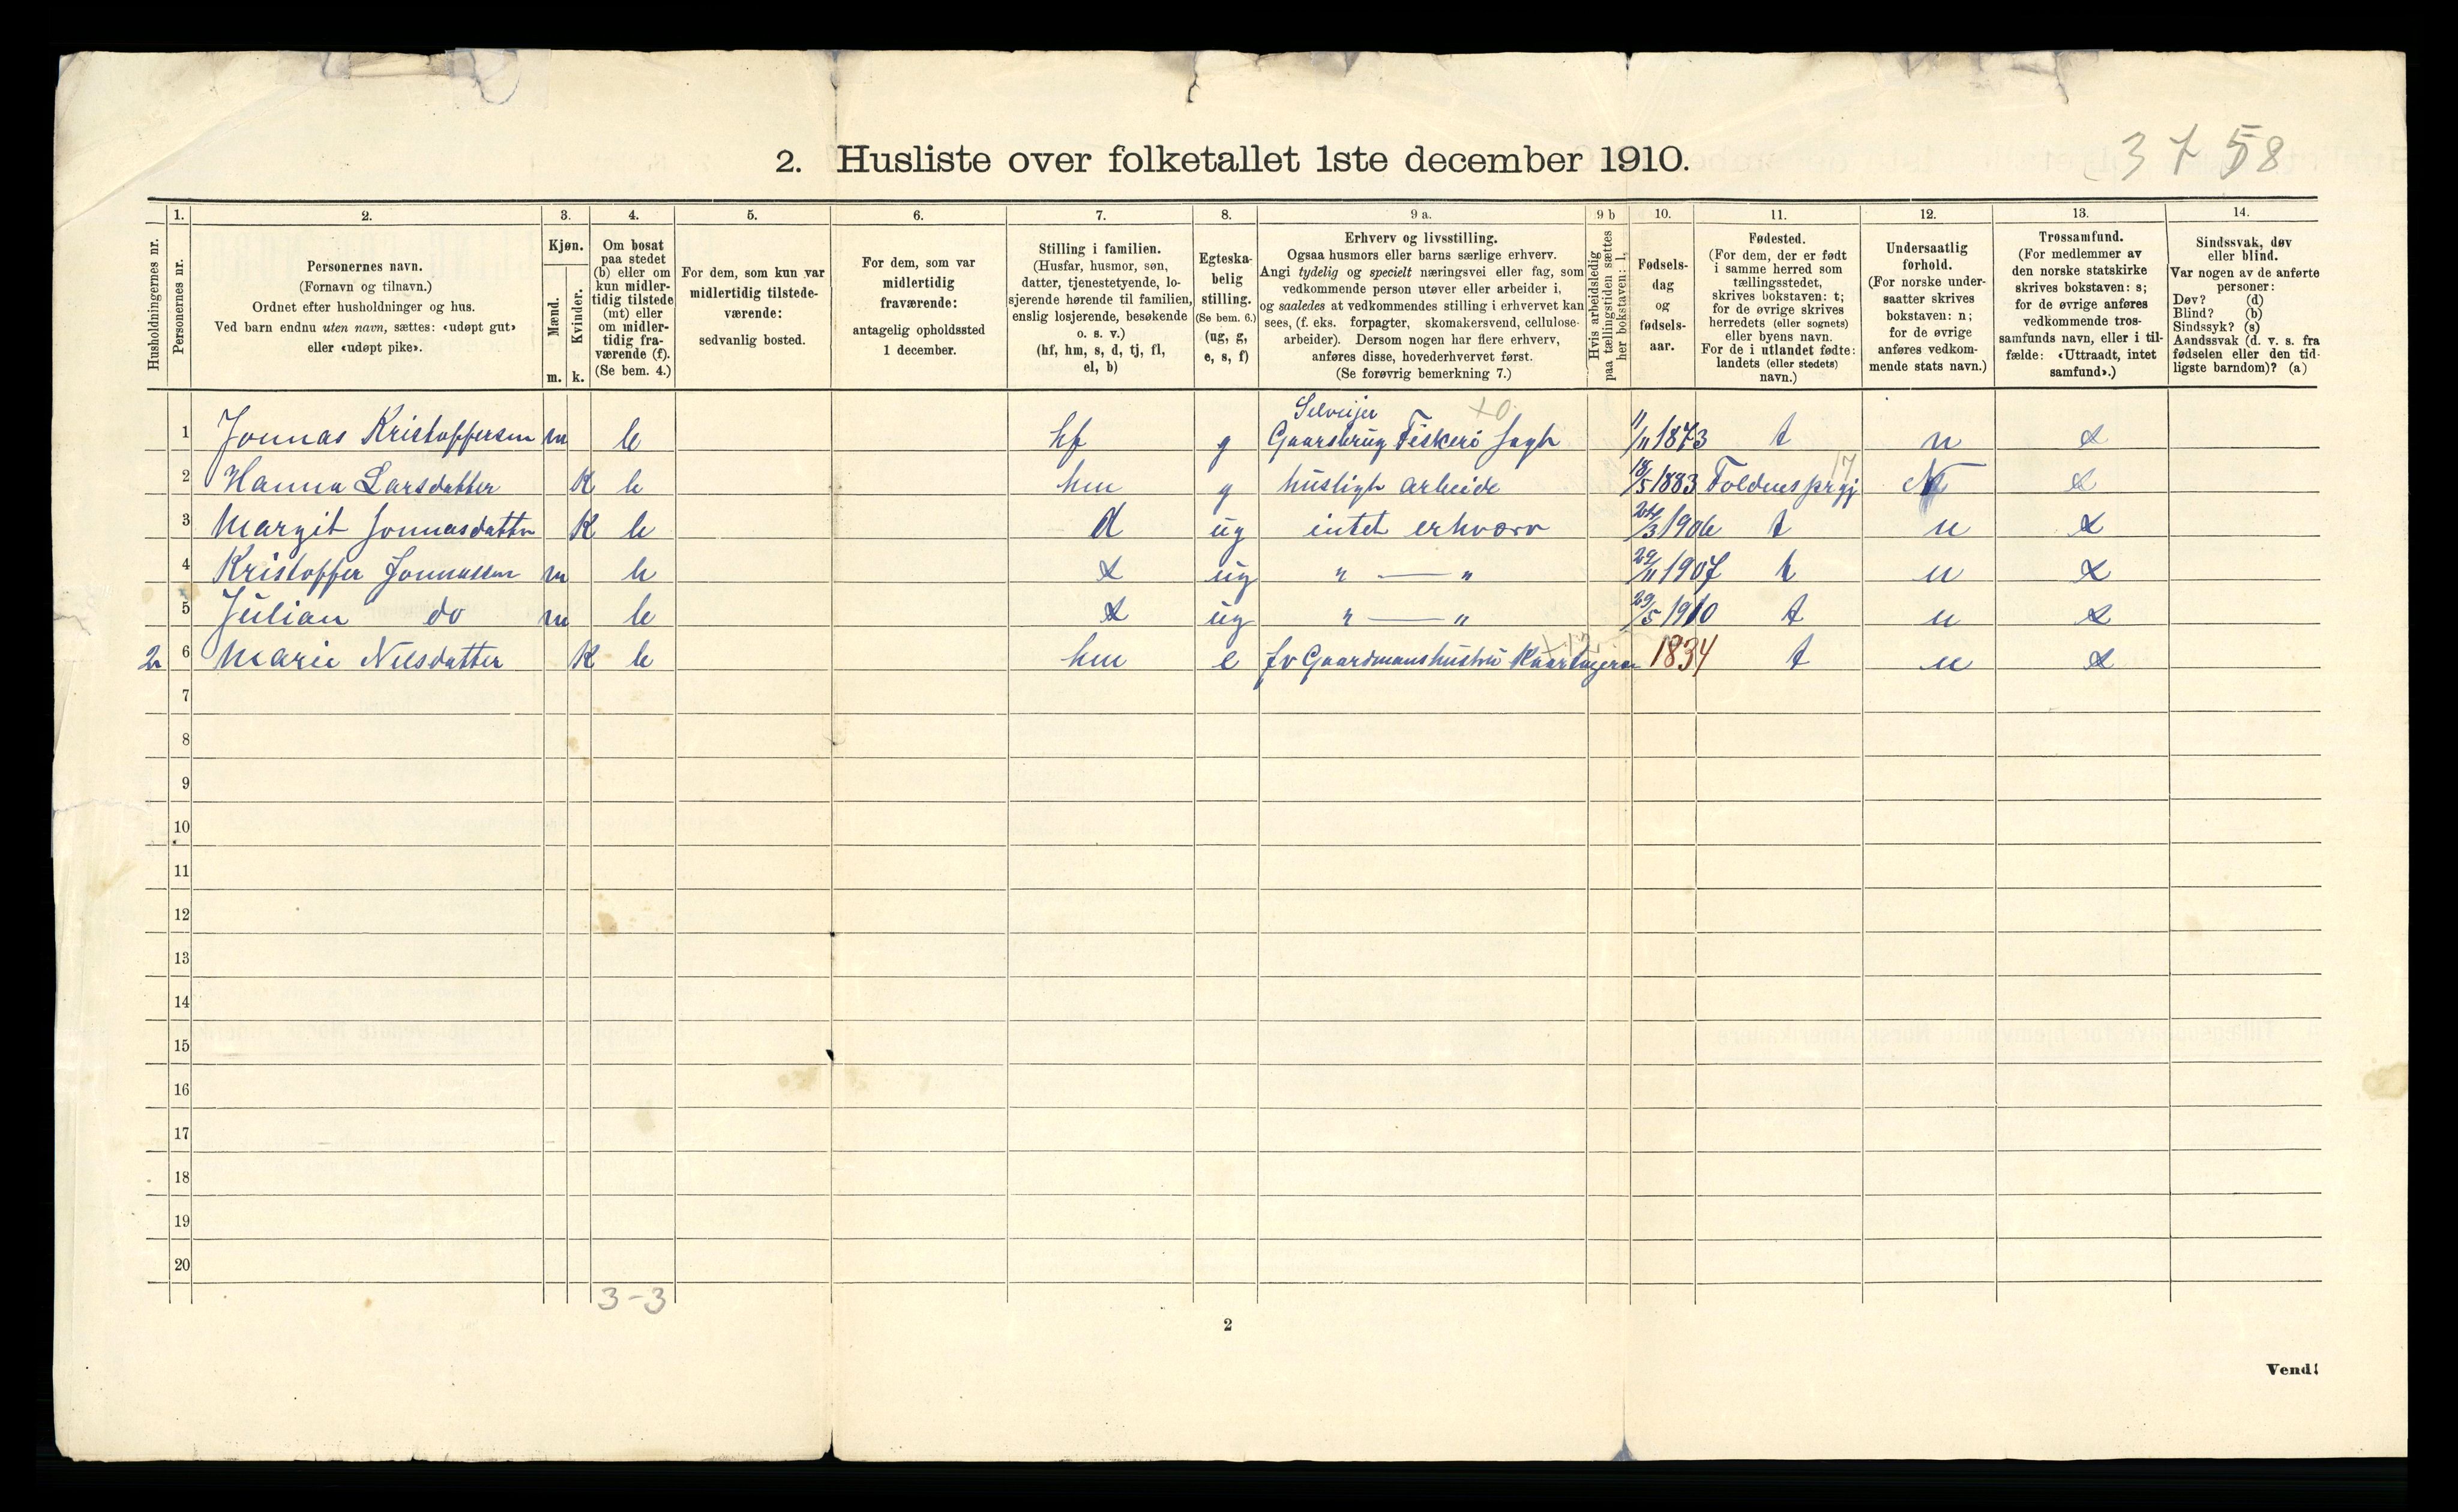 3 7 58
2. Husliste over folketallet 1ste december 1910.
Husholdningernes nr.
1.
Personernes nr.
2.
Personernes navn.
(Fornavn og tilnavn.)
Ordnet efter husholdninger og hus.
Ved barn endnu uten navn, sættes: «udøpt gut»
eller «udøpt pike».
3.
Kjøn.
Mænd.
m.
Kvinder.
k.
4.
Om bosat
paa stedet
(b) eller om
kun midler-
tidig tilstede
(mt) eller
om midler-
tidig fra-
værende (f).
(Se bem. 4.)
5.
For dem, som kun var
midlertidig tilstede-
værende:
sedvanlig bosted.
6.
For dem, som var
midlertidig
fraværende:
antagelig opholdssted
1 december.
7.
Stilling i familien.
(Husfar, husmor, søn,
datter, tjenestetyende, lo-
sjerende hørende til familien,
enslig losjerende, besøkende
o. s. v.)
(hf, hm, s, d, tj, fl,
el, b)
8.
Egteska-
belig
stilling.
(Se bem. 6.)
(ug, g,
e, s, f)
9 a.
Erhverv og livsstilling.
Ogsaa husmors eller barns særlige erhverv.
Angi tydelig og specielt næringsvei eller fag, som
vedkommende person utøver eller arbeider i,
og saaledes at vedkommendes stilling i erhvervet kan
sees, (f. eks. forpagter, skomakersvend, cellulose-
arbeider). Dersom nogen har flere erhverv,
anføres disse, hovederhvervet først.
(Se forøvrig bemerkning 7.)
9 b
Hvis arbeidsledig
paa tællingstiden sættes
her bokstaven: l.
10.
Fødsels-
dag
og
fødsels-
aar.
11.
Fødested.
(For dem, der er født
i samme herred som
tællingsstedet,
skrives bokstaven: t;
for de øvrige skrives
herredets (eller sognets)
eller byens navn.
For de i utlandet fødte:
landets (eller stedets)
navn.)
12.
Undersaatlig
forhold.
(For norske under-
saatter skrives
bokstaven: n;
for de øvrige
anføres vedkom-
mende stats navn.)
13.
Trossamfund.
(For medlemmer av
den norske statskirke
skrives bokstaven: s;
for de øvrige anføres
vedkommende tros-
samfunds navn, eller i til-
fælde: «Uttraadt, intet
samfund».)
14.
Sindssvak, døv
eller blind.
Var nogen av de anførte
personer:
Døv? (d)
Blind? (b)
Sindssyk? (s)
Aandssvak (d. v. s. fra
fødselen eller den tid-
ligste barndom)? (a)
Selveijer +0
1 Jonnas Kristoffersen m b hf g Gaarsbrug Fiskeri Jagt 11/11 1873 t n s
2 Hanna Larsdatter K b hm g husligt arbeide 18/5 1883 Foldens prgj 17 N s
3 Margit Jonnasdatter K b d ug intet erhværv 24/3 1906 t n s
4 Kristoffer Jonnassen m b s ug " — " 29/11 1907 t n s
5 Julian do m b s ug " — " 29/5 1910 t n s
2 6 Marie Nilsdatter K b hm e fv Gaardmanshustru 1834 t n s
7
8
9
10
11
12
13
14
15
16
17
18
19
20
3-3
2
Vend!